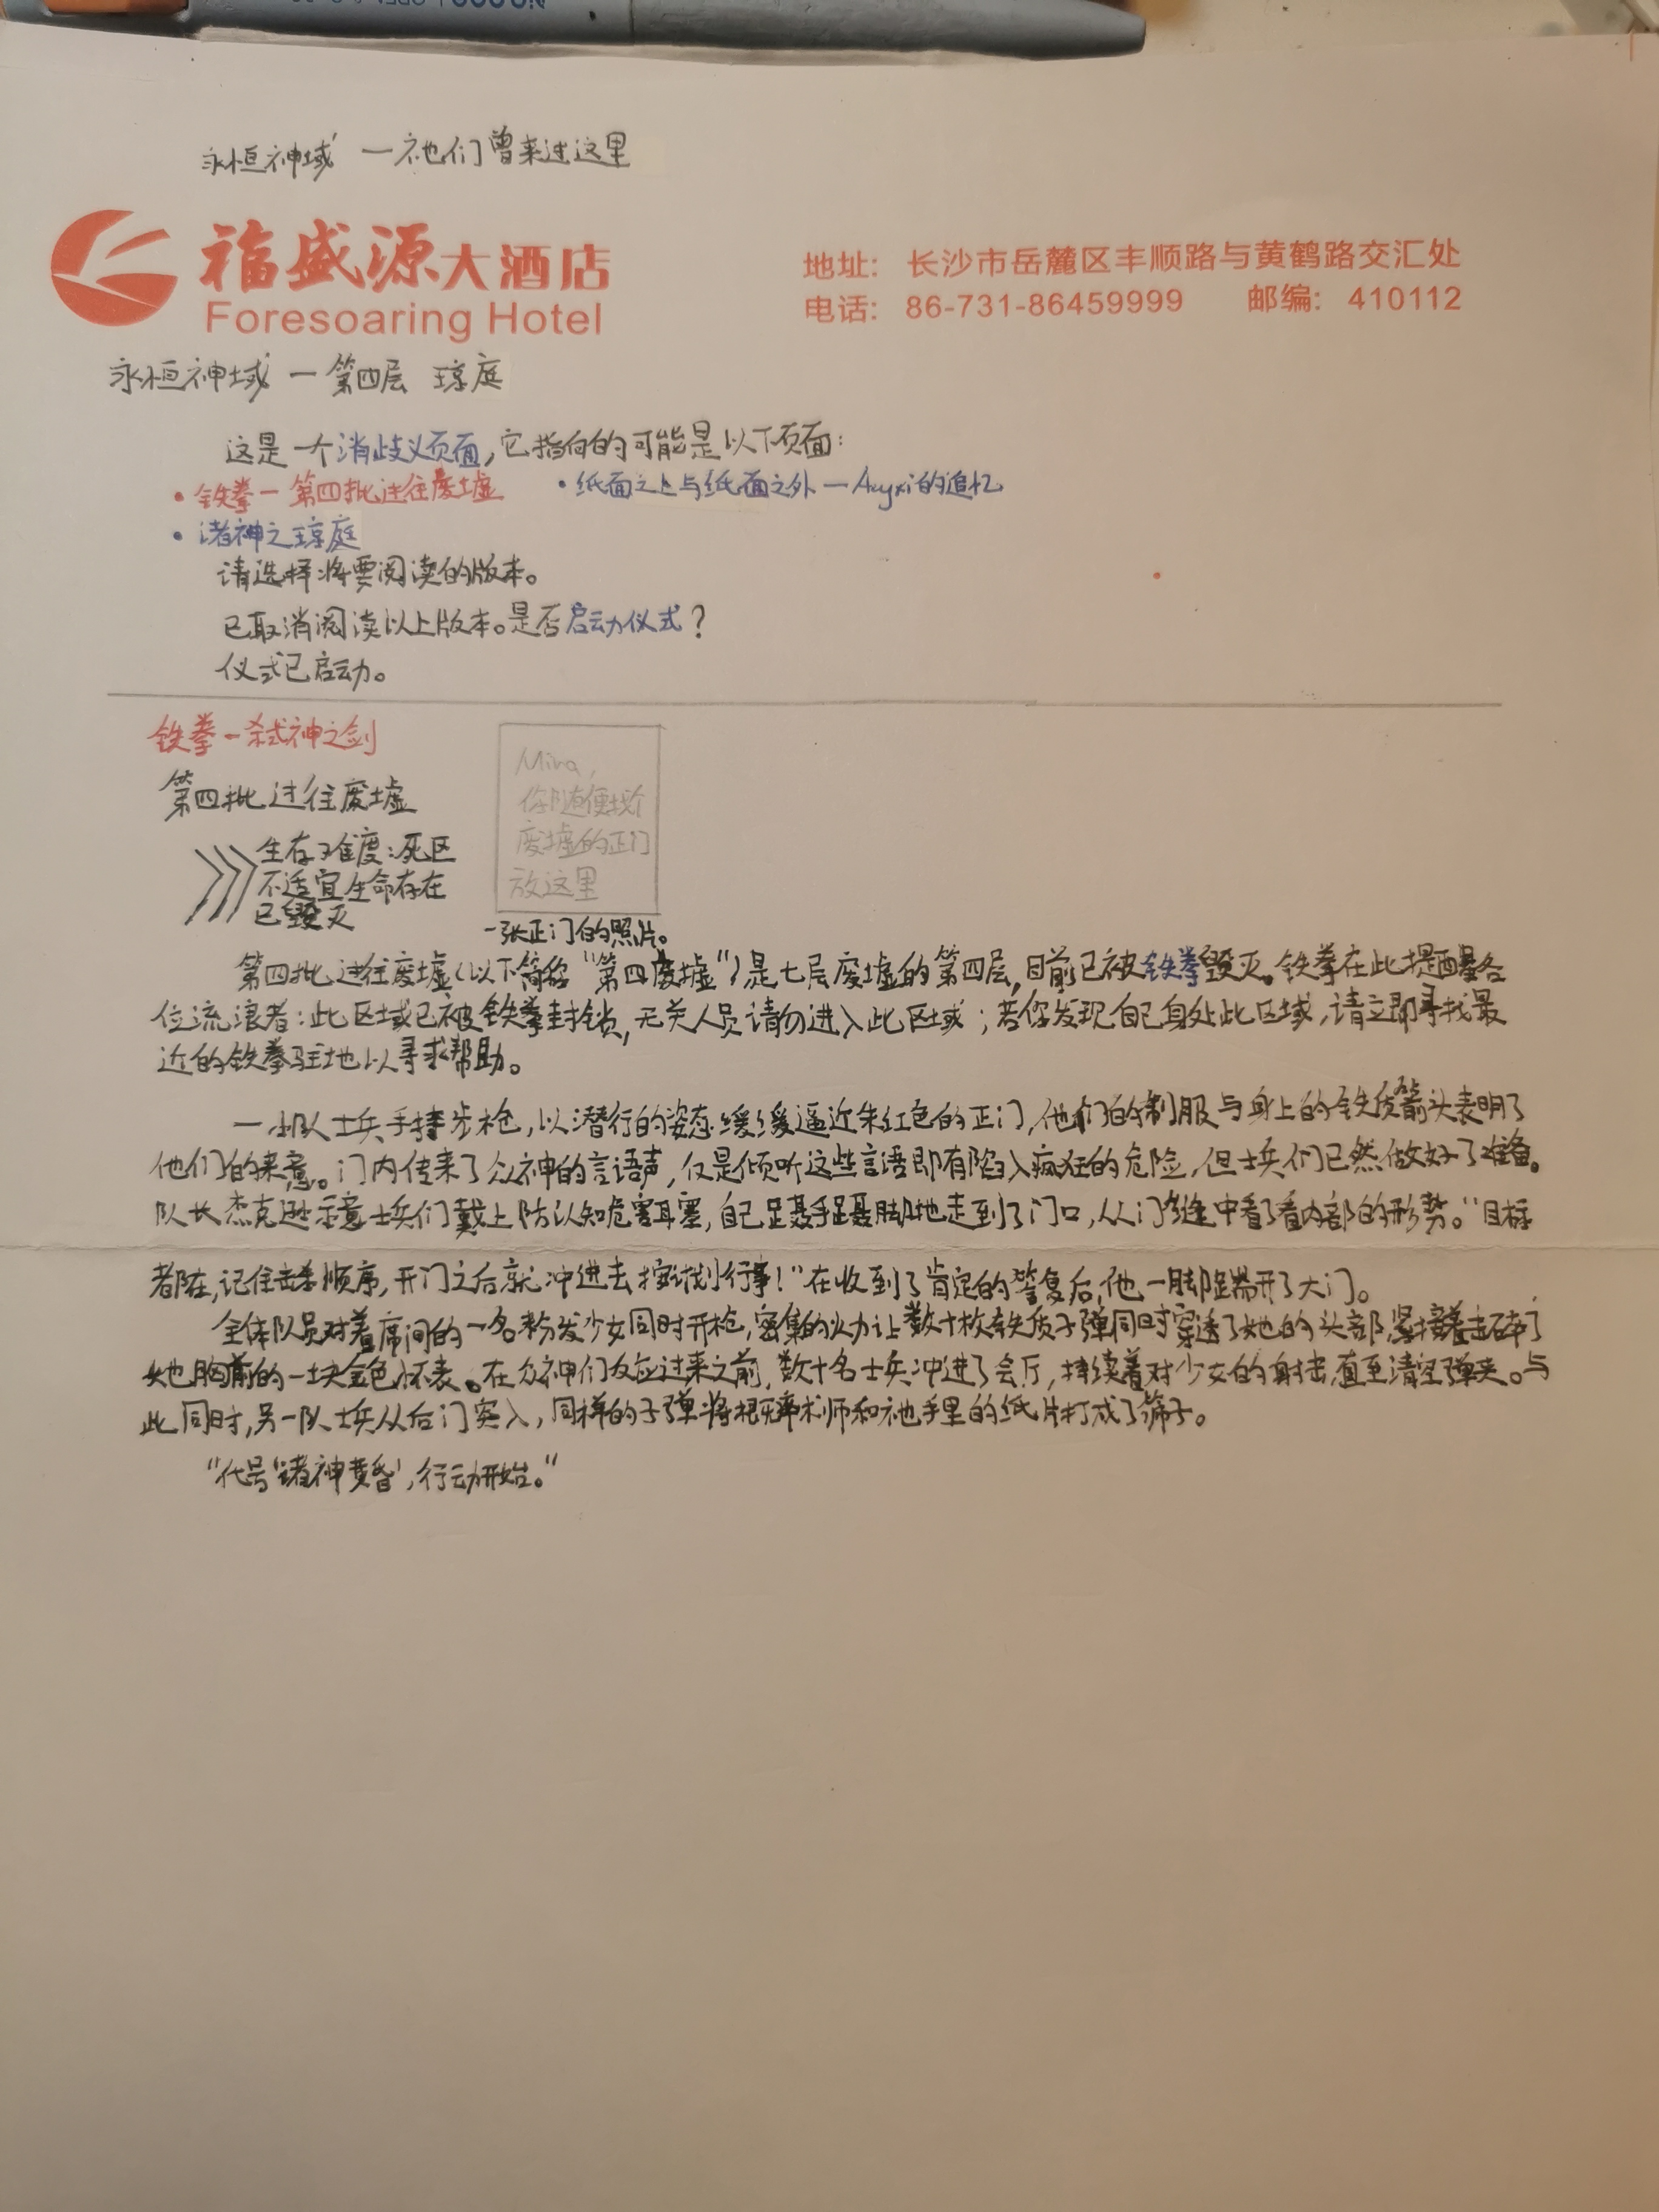 永恒神域 一祂们曾来过这里
福盛源大酒店
Foresoaring Hotel
地址: 长沙市岳麓区丰顺路与黄鹤路交汇处
电话: 86-731-86459999 邮编: 410112
永恒神域 一 第四层 琼庭
这是一个消歧义页面,它指向的可能是以下页面:
• 铁拳一第四批过往废墟 • 纸面之上与纸面之外一 的追忆
• 诸神之琼庭
请选择将要阅读的版本。
已取消阅读以上版本。是否启动仪式?
仪式已启动。
铁拳一弑神之剑
第四批过往废墟
生存难度:死区
不适宜生命存在
已毁灭
Mira,
你随便找个
废墟的正门
放这里
一张正门的照片。
第四批过往废墟(以下简称“第四废墟”)是七层废墟的第四层,目前已被铁拳毁灭。铁拳在此提醒各
位流浪者:此区域已被铁拳封锁,无关人员请勿进入此区域;若你发现自己身处此区域,请立即寻找最
近的铁拳驻地以寻求帮助。
一小队士兵手持步枪,以潜行的姿态缓缓逼近朱红色的正门,他们的制服与身上的铁质箭头表明了
他们的来意。门内传来了众神的言语声,仅是倾听这些言语即有陷入疯狂的危险,但士兵们已然做好了准备。
队长杰克逊示意士兵们戴上防认知危害耳塞,自己蹑手蹑脚地走到了门口,从门缝中看了看内部的形势。“目标
都在,记住击杀顺序,开门之后就冲进去按计划行事!”在收到了肯定的答复后,他一脚踹开了大门。
全体队员对着席间的一名粉发少女同时开枪,密集的火力让数十枚铁质子弹同时穿透了她的头部,紧接着击碎了
她胸前的一块金色怀表。在众神们反应过来之前,数十名士兵冲进了会厅,持续着对少女的射击,直至清空弹夹。与
此同时,另一队士兵从后门突入,同样的子弹将概率术师和祂手里的纸片打成了筛子。
“代号‘诸神黄昏’,行动开始。”